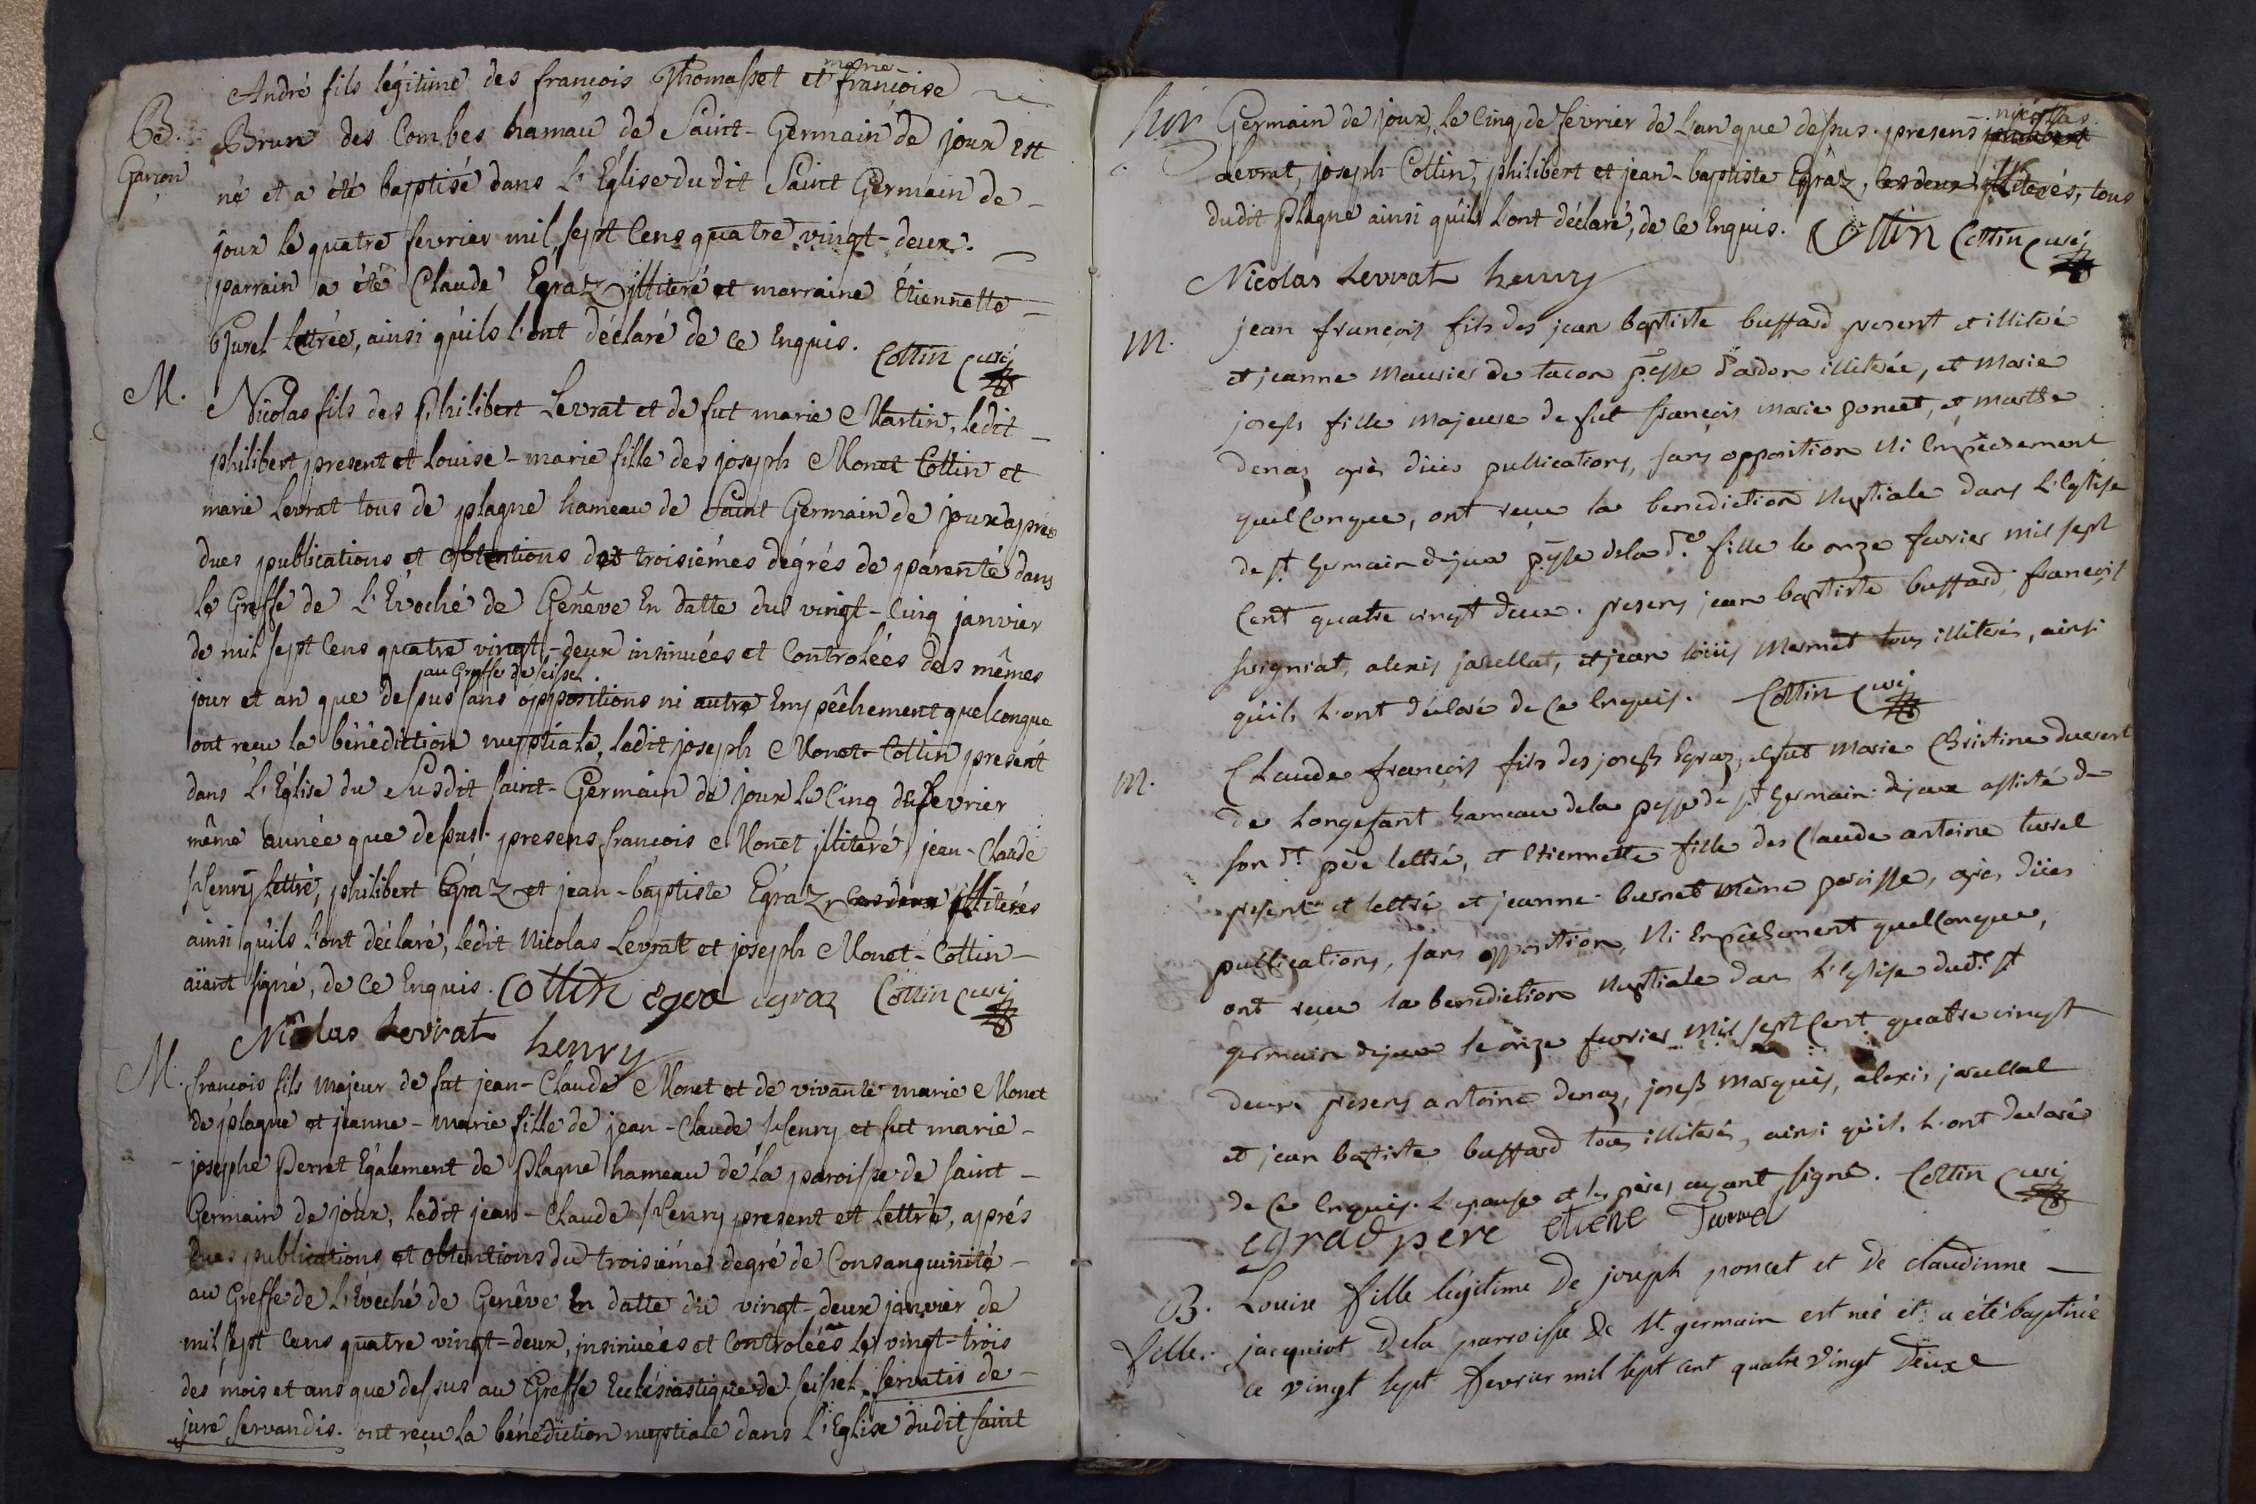 André fils légitime des françois Thomasset et marie françoise
B. Brun des Combes hamau de Saint-Germain de joux est
Garçon né et a été baptisé dans L'Église du dit Saint Germain de
joux le quatre fevrier mil sept Cens quatre vingt-deux.
parrain a été Claude Egraz illiteré et marraine Étiennette
Burel lettrée, ainsi qu'ils l'ont déclaré de ce Enquis. Cottin Curé
M. Nicolas fils des Philibert Levrat et de fut marie Martin, ledit
philibert present et Louise-marie fille des joseph Monet Cottin et
marie Levrat tous de plagne hameau de Saint Germain de joux après
dues publications et obtentions des troisiémes dégrés de parenté dans
Le Greffe de L'Evéché de Genêve En datte du vingt-Cinq janvier
de mil sept Cens quatre vingt-deux insinuées et Controlées des mêmes
au Greffe de seissel
jour et an que dessus sans oppositions ni autre Empêchement quelconque
ont reçu la bénédiction nuptiale, ledit joseph Monet-Cottin present
dans L'Église du Susdit saint-Germain de joux le Cinq de fevrier
même année que dessus. presens francois Monet illiteré, jean-Claude
Henry lettré, philibert Egraz et jean-baptiste Egraz, Ces deux illiterés
ainsi qu'ils l'ont déclaré, ledit Nicolas Levrat et joseph Monet-Cottin
aïant signé, de Ce Enquis. Cottin egra egraz Cottin Curé
Nicolas Levrat henry
M. francois fils majeur de fut jean-Claude Monet et de vivante marie Monet
de plagne et jeanne-marie fille de jean-Claude Henry et fut marie-
josephe Perret Également de Plagne hameau de la paroisse de saint-
Germain de joux, ledit jean-Claude Henry present et Lettré, aprés
dues publications et obtentions du troisiéme degré de Consanguinité
au Greffe de L'Evéché de Genêve En datte du vingt-deux janvier de
mil sept Cens quatre vingt-deux, insinuées et Controlées Le vingt-trois
des mois et ans que dessus au Greffe Ecclésiastique de seissel servatis de
jure servandis. ont reçu la bénédiction nuptiale dans L'Eglise dudit saint
Germain de joux, Le Cinq de fevrier de L'an que dessus. presens nicolas
Levrat, joseph Cottin, philibert et jean-baptiste Egraz, Ces deux illiterés, tous
dudit Plagne ainsi qu'ils l'ont déclaré, de Ce Enquis. Cottin Cottin Curé
Nicolas Levrat henry
M. jean francois fils des jean baptiste buffard present et illiteré
et jeanne Maurier de tacon psse d'ardon illiterée, et Marie
joseph fille Majeure de fut francois marie poncet, et marthe
denaz après dües publications, sans opposition Ni Empêchement
quelConque, ont reçu la benediction Nuptiale dans L'eglise
de st germain dejoux psse dela de fille le onze fevrier mil sept
Cent quatre vingt deux. presens jean baptiste buffard, francois
, alexis jacullat, et jean loüis Mermet tous illiterés, ainsi
qu'ils l'ont déclaré de Ce Enquis. Cottin Curé
M. Claude francois fils des joseph Egraz, et fut Marie Christine ducret
de Longefant hameau dela psse de st germain dejoux assisté de
son dt père lettré, et Etiennette fille des Claude antoine turrel
present et lettré et jeanne burnet même paroisse, après dües
publications, sans opposition, Ni Empêchement quelConque,
ont reçu la benediction Nuptiale dans L'eglise dudt st
germain dejoux le onze fevrier mil sept Cent quatre vingt
deux. presens antoine denaz, joseph marquis, alexis jacullat
et jean baptiste buffard tous illiterés, ainsi qu'ils l'ont declaré
de Ce Enquis. L'epouse et les pères ayant signé. Cottin Curé
egraz pere etiene Turrel
B. Louise fille légitime De joseph poncet et De claudinne
fille. jacquiot Dela parroisse De St. germain est née et a été baptisée
ce vingt sept fevrier mil sept cent quatre Vingt Deuxe